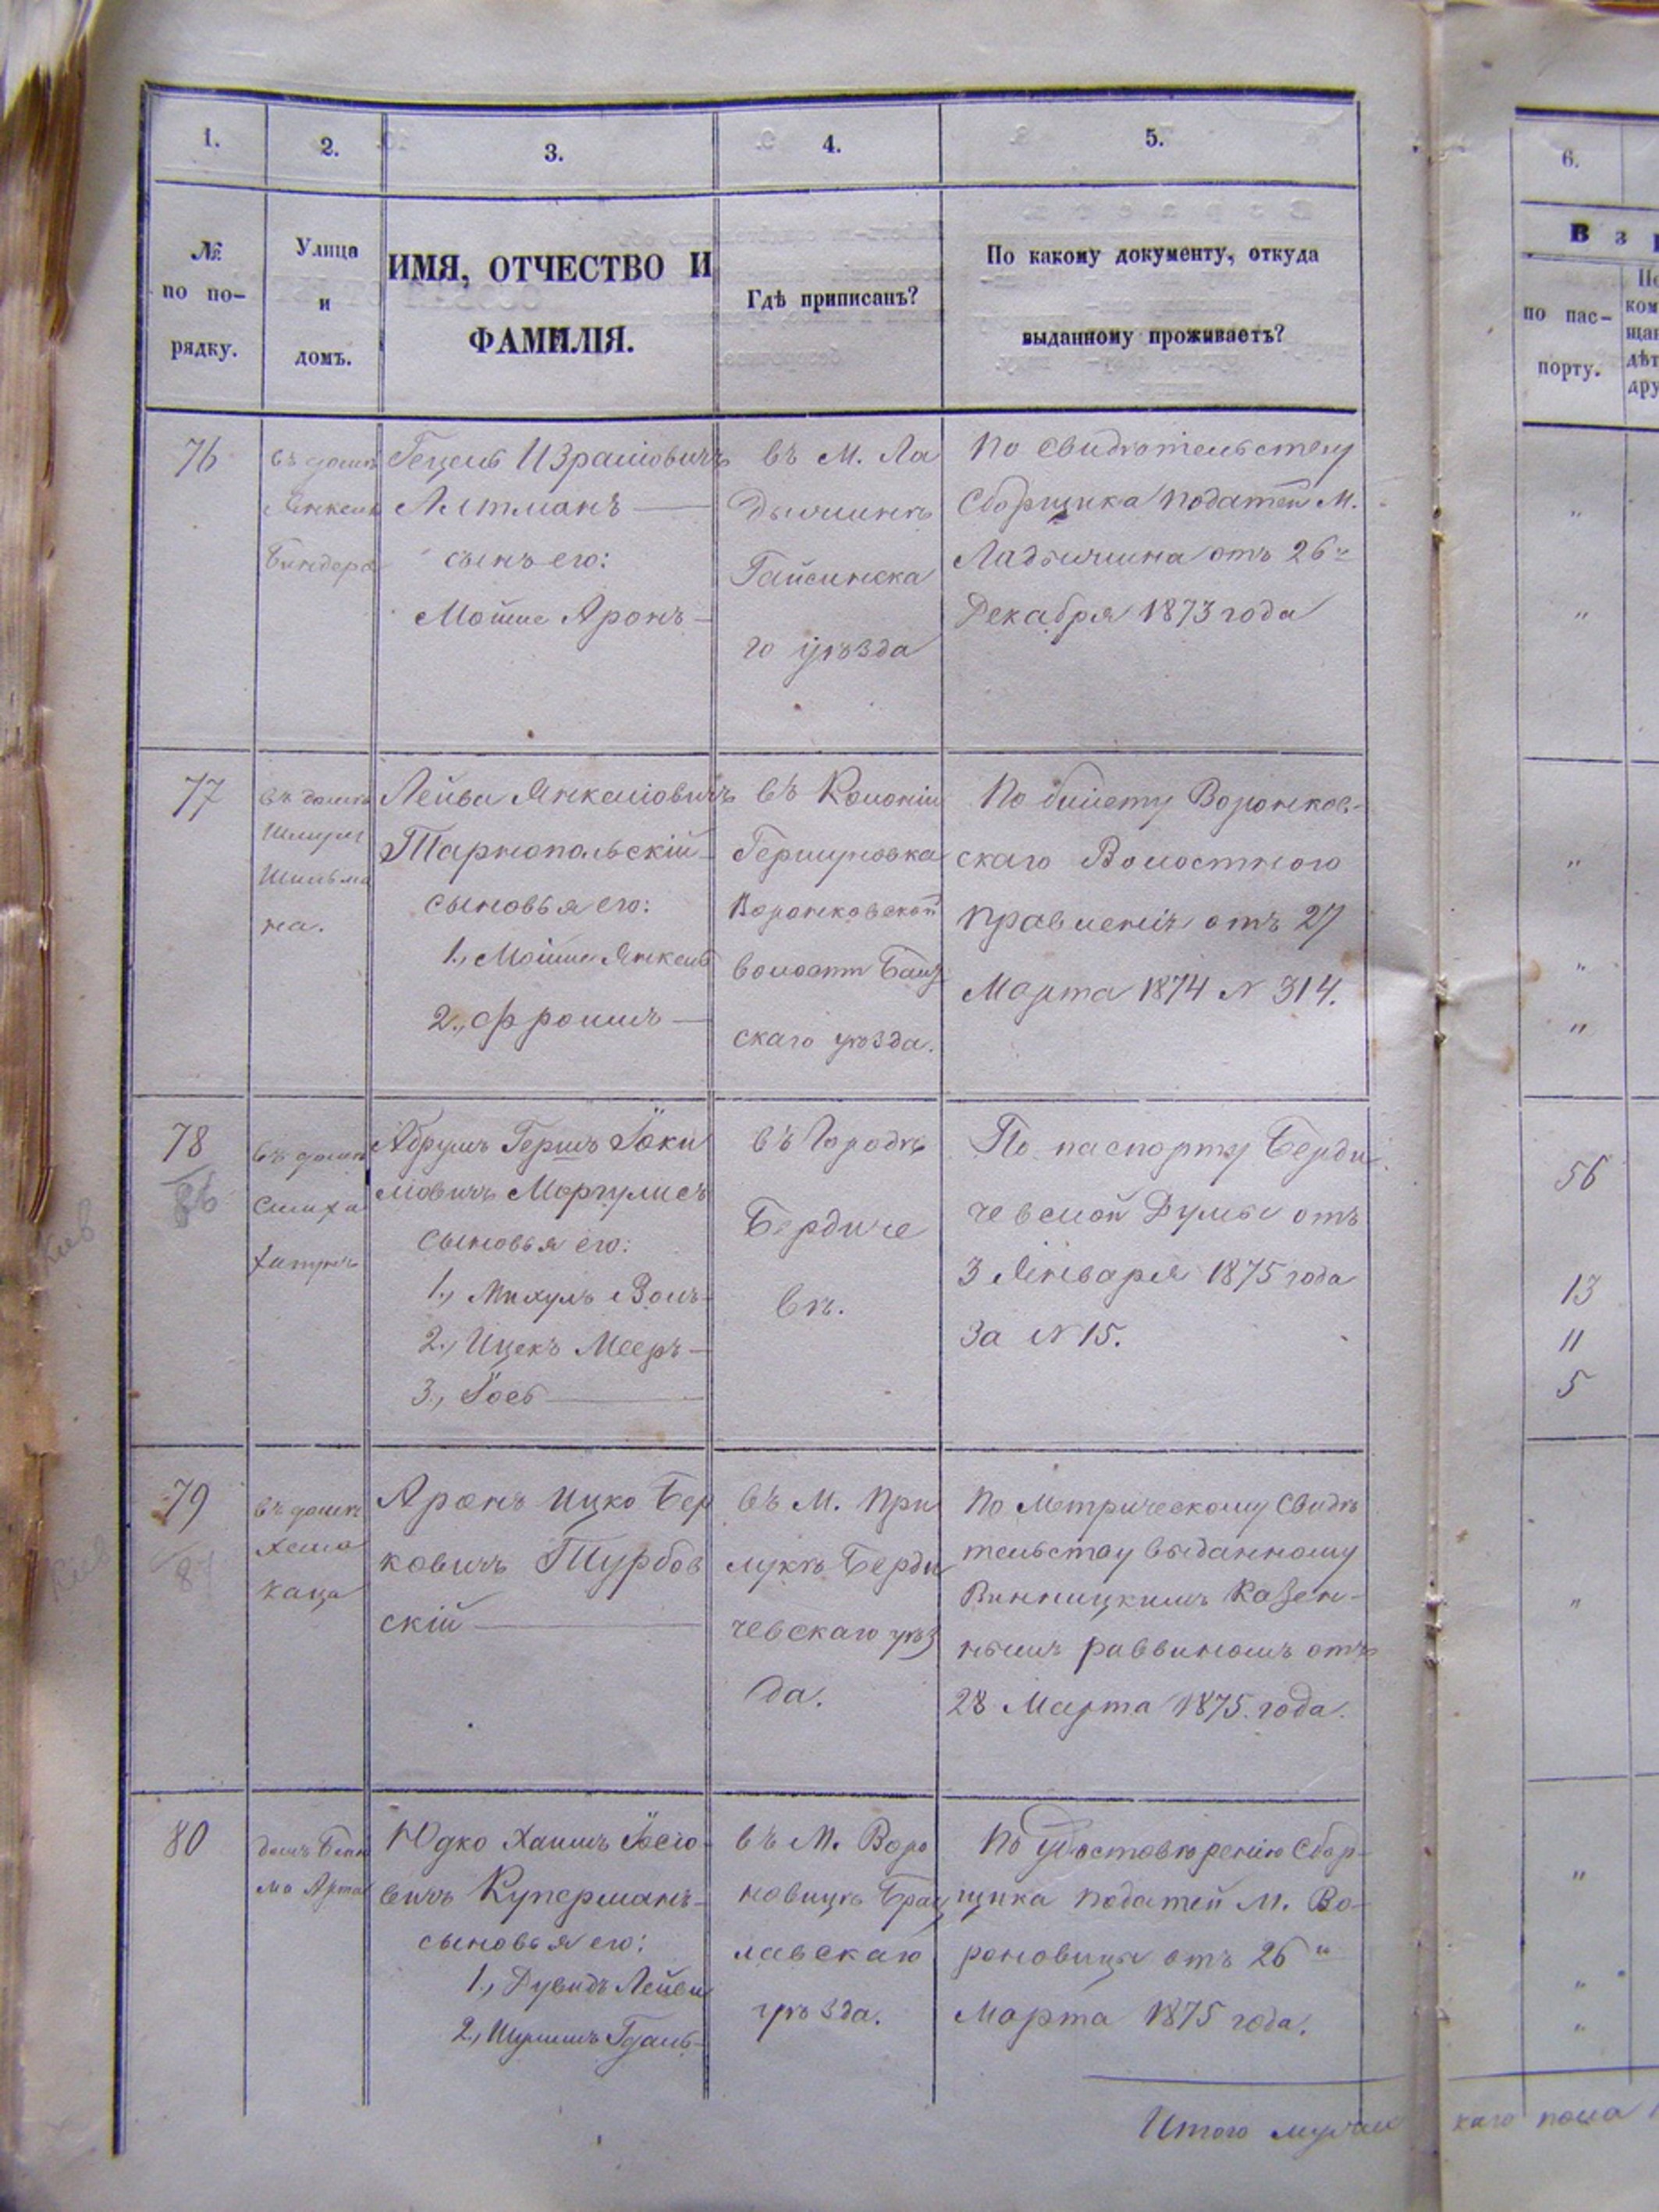 1.
2.
3.
4.
5.
6.
№
по по-
рядку.
Улица
и
домъ.
ИМЯ, ОТЧЕСТВО И
ФАМИЛІЯ.
Гдѣ приписанъ?
По какому документу, откуда
выданному проживаетъ?
В з р
по пас-
порту.
76
въ домѣ
Янкеля
Биндера
Гецель Израиловичъ
Алтманъ
сынъ его:
Мойше Аронъ
въ М. Ла
дыжинѣ
Гайсинска
го уѣзда
По свидѣтельству
Сборщика податей М.
Ладыжина отъ 26
Декабря 1873 года
77
въ домѣ
Шмуля
Шильма
на.
Лейба Янкелiовичъ
Тарнопольскій
сыновья его:
1., Мойше Янкель
2., Фроимъ
въ Колоніи
Гершуновка
Воронковской
волости Балт
скаго уѣзда.
По билету Воронков-
скаго Волостного
правленія отъ 27
Марта 1874 N 314.
78
86
въ домѣ
Абрумъ Гершъ Іоки
мовичъ Моргулисъ
сыновья его:
1., Михуль Волъ
2., Ицекъ Мееръ
3., Іось
въ Городѣ
Бердиче
вѣ.
По паспорту Берди
чевской Думы отъ
3 Января 1875 года
За N 15.
56
13
11
5
79
87
въ домѣ
Каца
Аронъ Ицко Бер
ковичъ Турбов
скій
въ М. При
лукѣ Берди
чевскаго уѣз
да.
По Метрическому Свидѣ
тельству выданному
Винницкимъ Казен-
нымъ раввиномъ отъ
28 Марта 1875 года.
80
Юдко Хаимъ Іосіо
вичъ Куперманъ
сыновья его:
1., Дувидъ Лейби
2., Шулимъ Гдаль
въ М. Воро
новицѣ Брац
лавскаго
уѣзда.
По Удостовѣренію Сбор-
щика податей М. Во-
роновицы отъ 26
Марта 1875 года.
Итого мужс каго пола